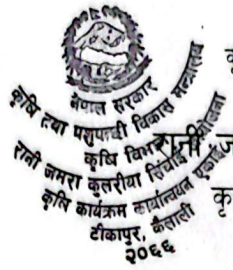 नेपाल सरकार
कृषि तथा पशुपन्छी विकास मन्त्रालय
कृषि विभाग
रानी जमरा कुलरीया सिंचाई आयोजना
कृषि कार्यक्रम कार्यान्वयन एकाई
टीकापुर, कैलाली
२०६६
कृ
रानी ज
कृ